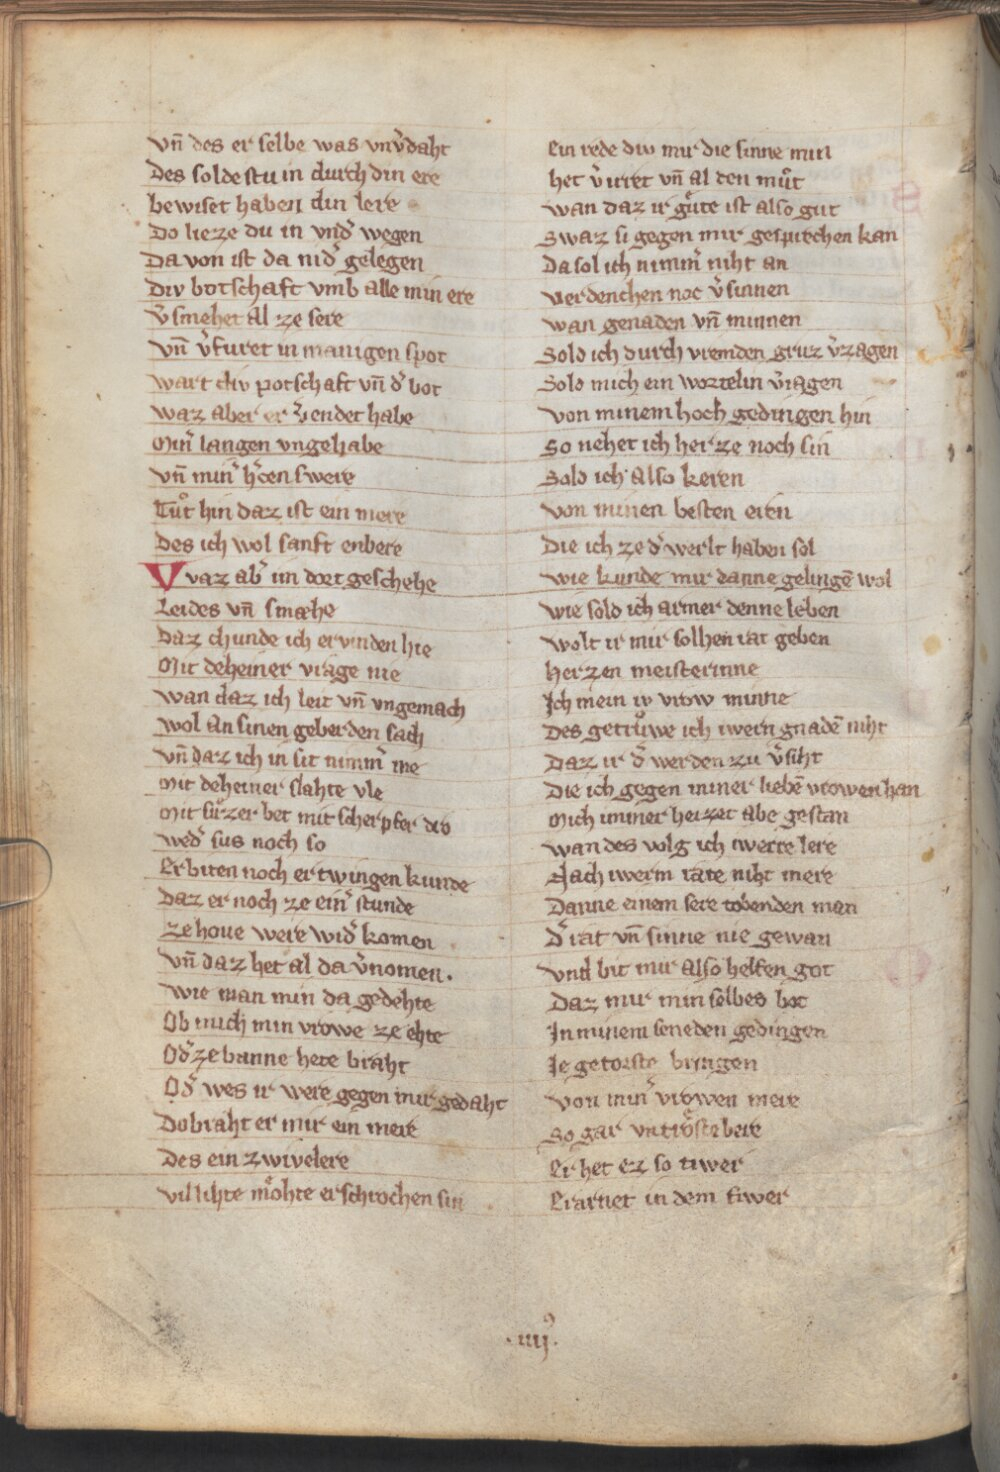 vn̄ des er selbe was vnv̓daht
Des soldestu in durch din ere
bewiset haben din lere
Do lieze du in vnd̓ wegen
Da von ist da nid̓ gelegen
Div botschaft vmb alle min ere
v̓smehet al ze sere
vn̄ v̓furet in manigen spot
wart div potschaft vn̄ d̓ bot
waz aber er v̓endet habe
Min̓ langen vngehabe
vn̄ min̓ h̓cen swere
Tuͦt hin daz ist ein mere
Des ich wol sanft enbere
Vvaz ab̓ im dort geschehe
Leides vn̄ smæhe
Daz chunde ich ervinden hie
Mit deheiner vrage nie
wan daz ich leit vn̄ vngemach
wol an sinen geberden sach
vn̄ daz ich in sit nimm̓ me
Mit deheiner slahte vle
Mit suͤzer bet mit scherpfer dro
wed̓ sus noch so
Erbiten noch ertwingen kunde
Daz er noch ze ein̓ stunde
ze houe were wid̓ komen
vn̄ daz het al da v̓nomen.
wie man min da gedehte
Ob mich min vrowe ze ehte
Od̓ ze banne hete braht
Od̓ wes ir were gegen mir gedaht
Do braht er mir ein mere
Des ein zwivelere
vil lihte moͤhte erschrochen sin
Ein rede div mir die sinne min
het v̓irret vn̄ al den muͦt
wan daz ir guͤte ist also gut
Swaz si gegen mir gesprechen kan
Da sol ich nimm̓ niht an
verdenchen noc v̓sinnen
wan genaden vn̄ minnen
Sold ich durch vremden gruz v̓zagen
Sold mich ein wortelin v̓iagen
von minem hoch gedingen hin
So nehet ich herze noch sin
Sold ich also keren
von minen besten eren
Die ich ze d̓ werlt haben sol
wie kunde mir danne gelingē wol
wie sold ich armer denne leben
wolt ir mir solhen rat geben
herzen meisterinne
Ich mein iv vrow minne
Des getruͦwe ich iwern gnadē niht
Daz ir d̓ werden zu v̓siht
Die ich gegen miner liebē vrowen han
Mich immer heizet abe gestan
wan des volg ich iwerre lere
Nach iwerm rate niht mere
Danne einem sere tobenden man
D̓ rat vn̄ sinne nie gewan
vnd bit mir also helfen got
Daz mir min selbes bot
In minem seneden gedingen
Je getorste bringen
von min̓ vrowen mere
So gar vntroͤstebere
Er het ez so tiwer
Erarnet in dem fiwer
.iiij⁹.